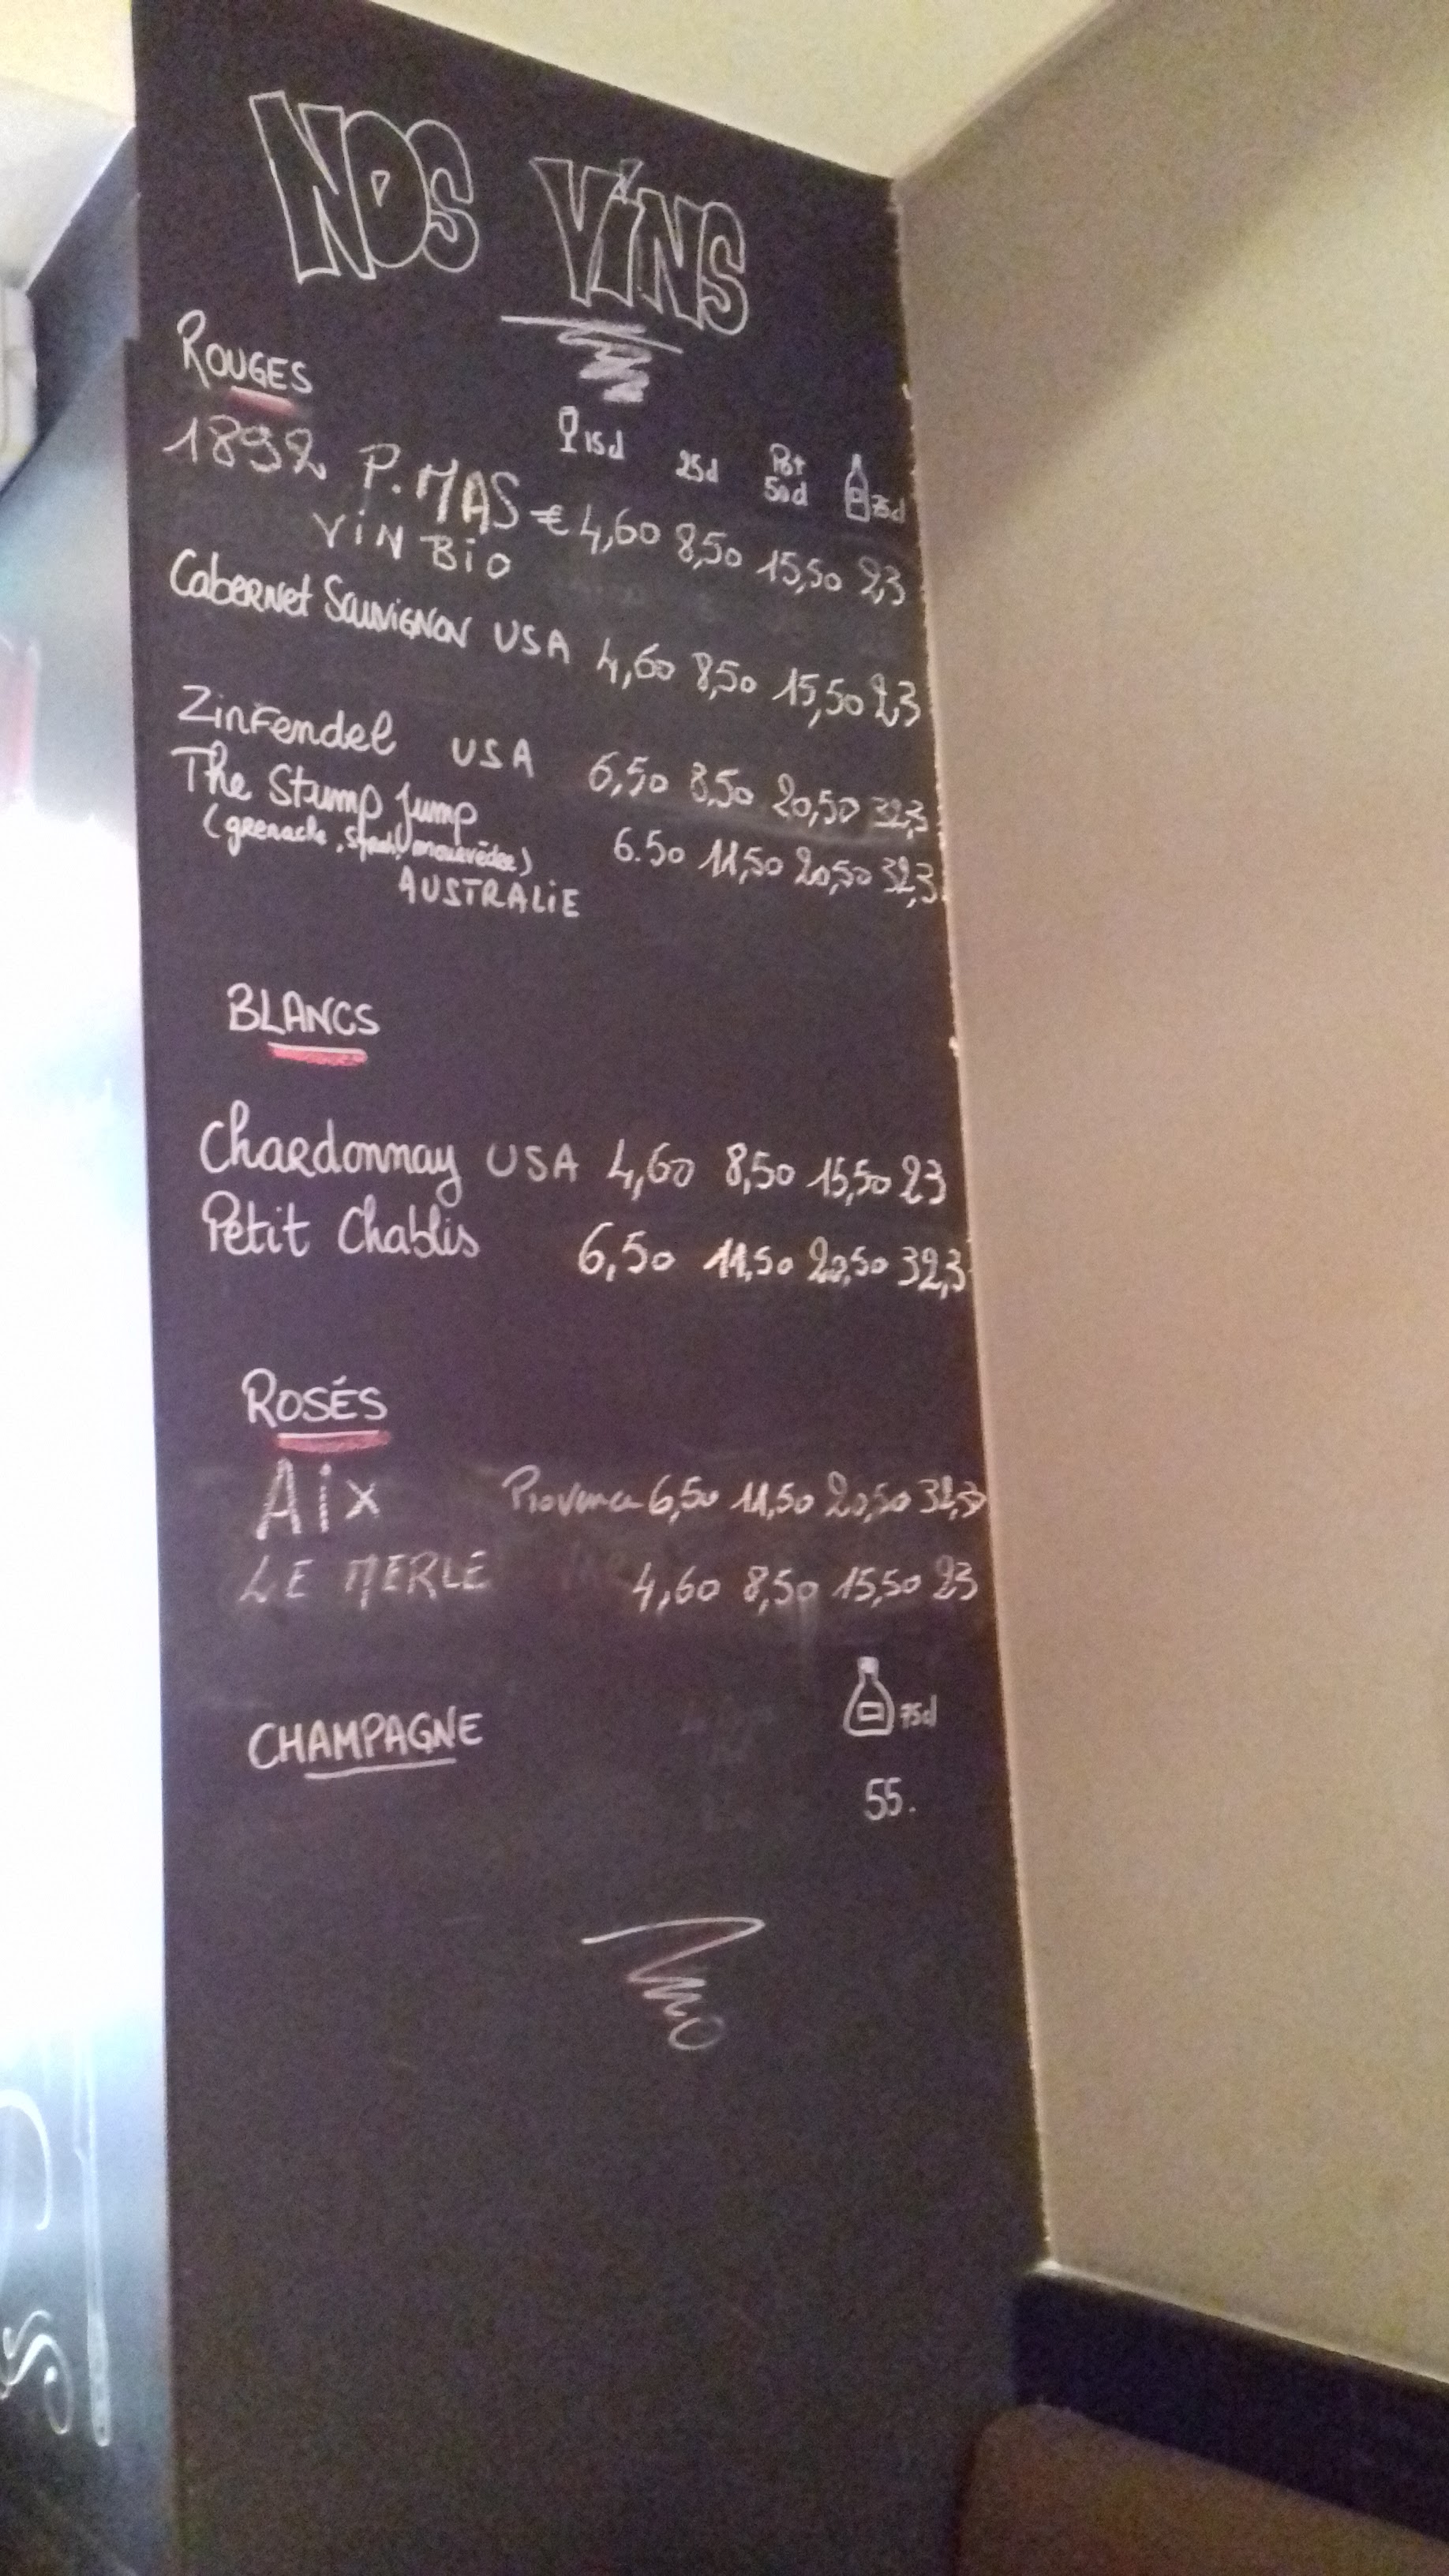 NOS VINS
ROUGES
15cl 25cl Pot 50cl 75cl
1892 P. MAS € 4,60 8,50 15,50 23
VIN BIO
Cabernet SAUVIGNON USA 4,60 8,50 15,50 23
Zinfendel USA 6,50 8,50 20,50 32,3
The Stump Jump 6.50 11,50 20,50 32,3
(grenache, mourvèdre)
AUSTRALIE
BLANCS
Chardonnay USA 4,60 8,50 15,50 23
Petit Chablis 6,50 11,50 20,50 32,3
ROSÉS
Aix Provence 6,50 11,50 20,50 32,3
LE MERLE 4,60 8,50 15,50 23
CHAMPAGNE 75cl
55.